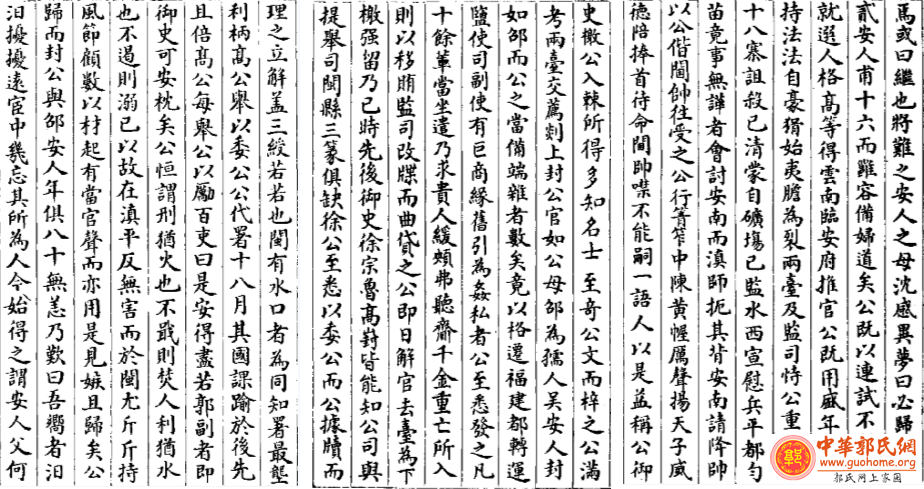 馬或曰繼也將難之安人之母沈感異夢曰必歸
貳安人甫十六而雖容備婦道矣公既以連試不
就選人格高等得雲南臨安府推官公既用盛年
持法法自豪猾始夷膽為裂兩臺及監司恃公重
十八寨詛殺已清蒙自礦塲已監水西宣慰兵平都勻
苗竟事無譁者會討安南而滇師扼其背安南請降帥
以公偕閫帥往受之公行菁窄中陳黃幄厲聲揚天子威
德陪捧首待命間帥噤不能嗣一語人以是益稱公御
史檄公入棘所得多知名士至奇公文而梓之公滿
考兩臺交薦剡上封公官如公母邵為孺人吴安人封
如邵而公之當備端雜者數矣竟以格遷福建都轉運
鹽使司副使有巨商緣舊引為姦私者公至悉發之凡
十餘輩當坐遣乃求貴人緩頰弗聽齎千金重亡所入
則以移賄監司改牒而曲貸之公即日解官去臺為下
檄强留乃已時先後御史徐宗魯高對皆能知公司與
提舉司閩縣三篆俱缺徐公至悉以委公而公據牘而
理之立解盖三綬若若也閩有水口者為同知署最墾
利柄高公舉以委公公代署十八月其國課踰於後先
且倍高公每舉公以勵百吏曰是安得盡若郭副者即
御史可安枕矣公恒謂刑猶火也不戢則焚人利猶水
也不遏則溺已以故在滇平反無害而於閩尤斤斤持
風節顧數以材起有當官聲而亦用是見嫉且歸矣公
歸而封公與邵安人年俱八十無恙乃歎曰吾嚮者汨
汨擾擾遠宦中幾忘其所為人今始得之謂安人父何
中華郭氏網
www.guohome.org
郭氏网上家园